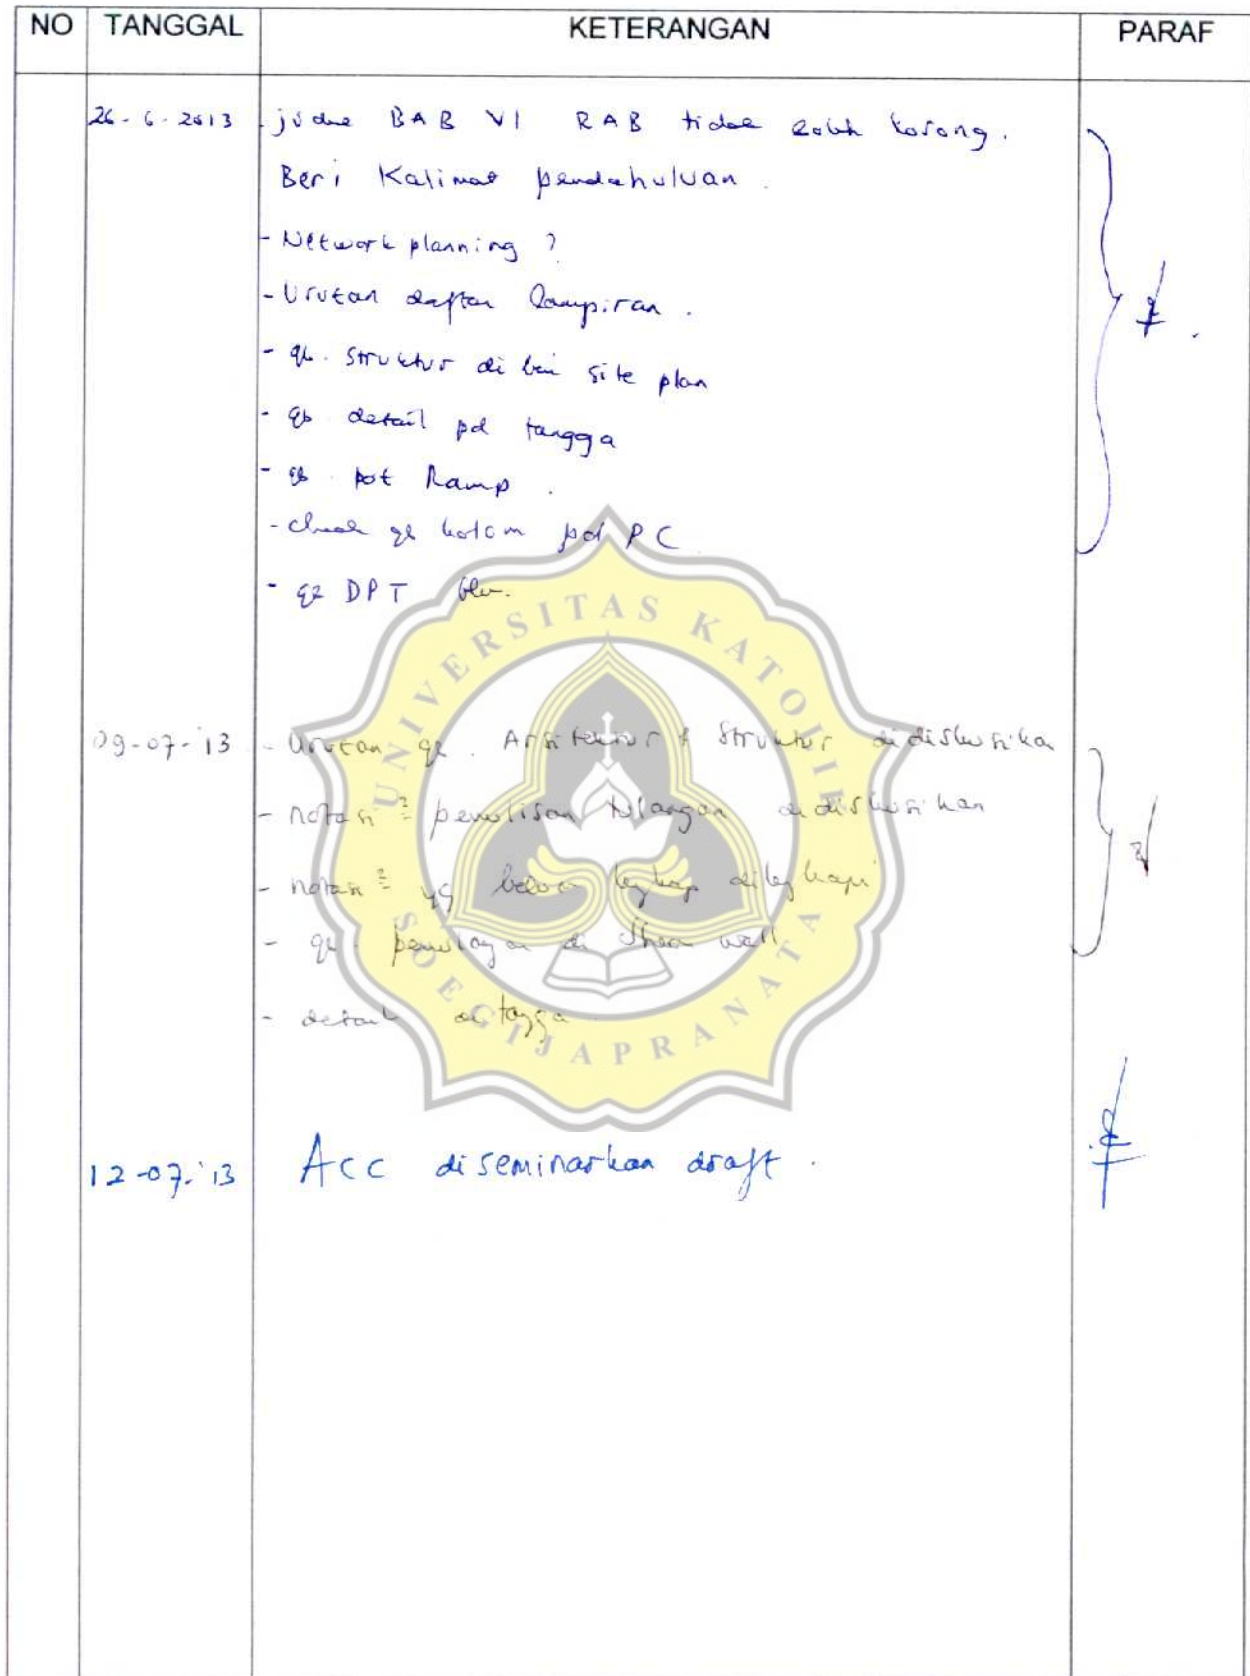 NO TANGGAL KETERANGAN PARAF
26-6-2013 - judul BAB VI RAB tidak boleh kosong.
Beri Kalimat pendahuluan.
- Network planning ?
- Urutan daftar Lampiran.
- gb. struktur di beri site plan
- gb detail pd tangga
- gb pot Ramp.
- check gb kolom pd PC
- gb DPT
09-07-'13 - Urutan gb. Arsitektur & Struktur didiskusikan
- notasi² penulisan tulangan didiskusikan
- notasi² yg belum lengkap dilengkapi
- gb. penulangan di Shear wall
- detail di tangga.
12-07-'13 Acc diseminarkan draft.
UNIVERSITAS KATOLIK
SOEGIJAPRANATA